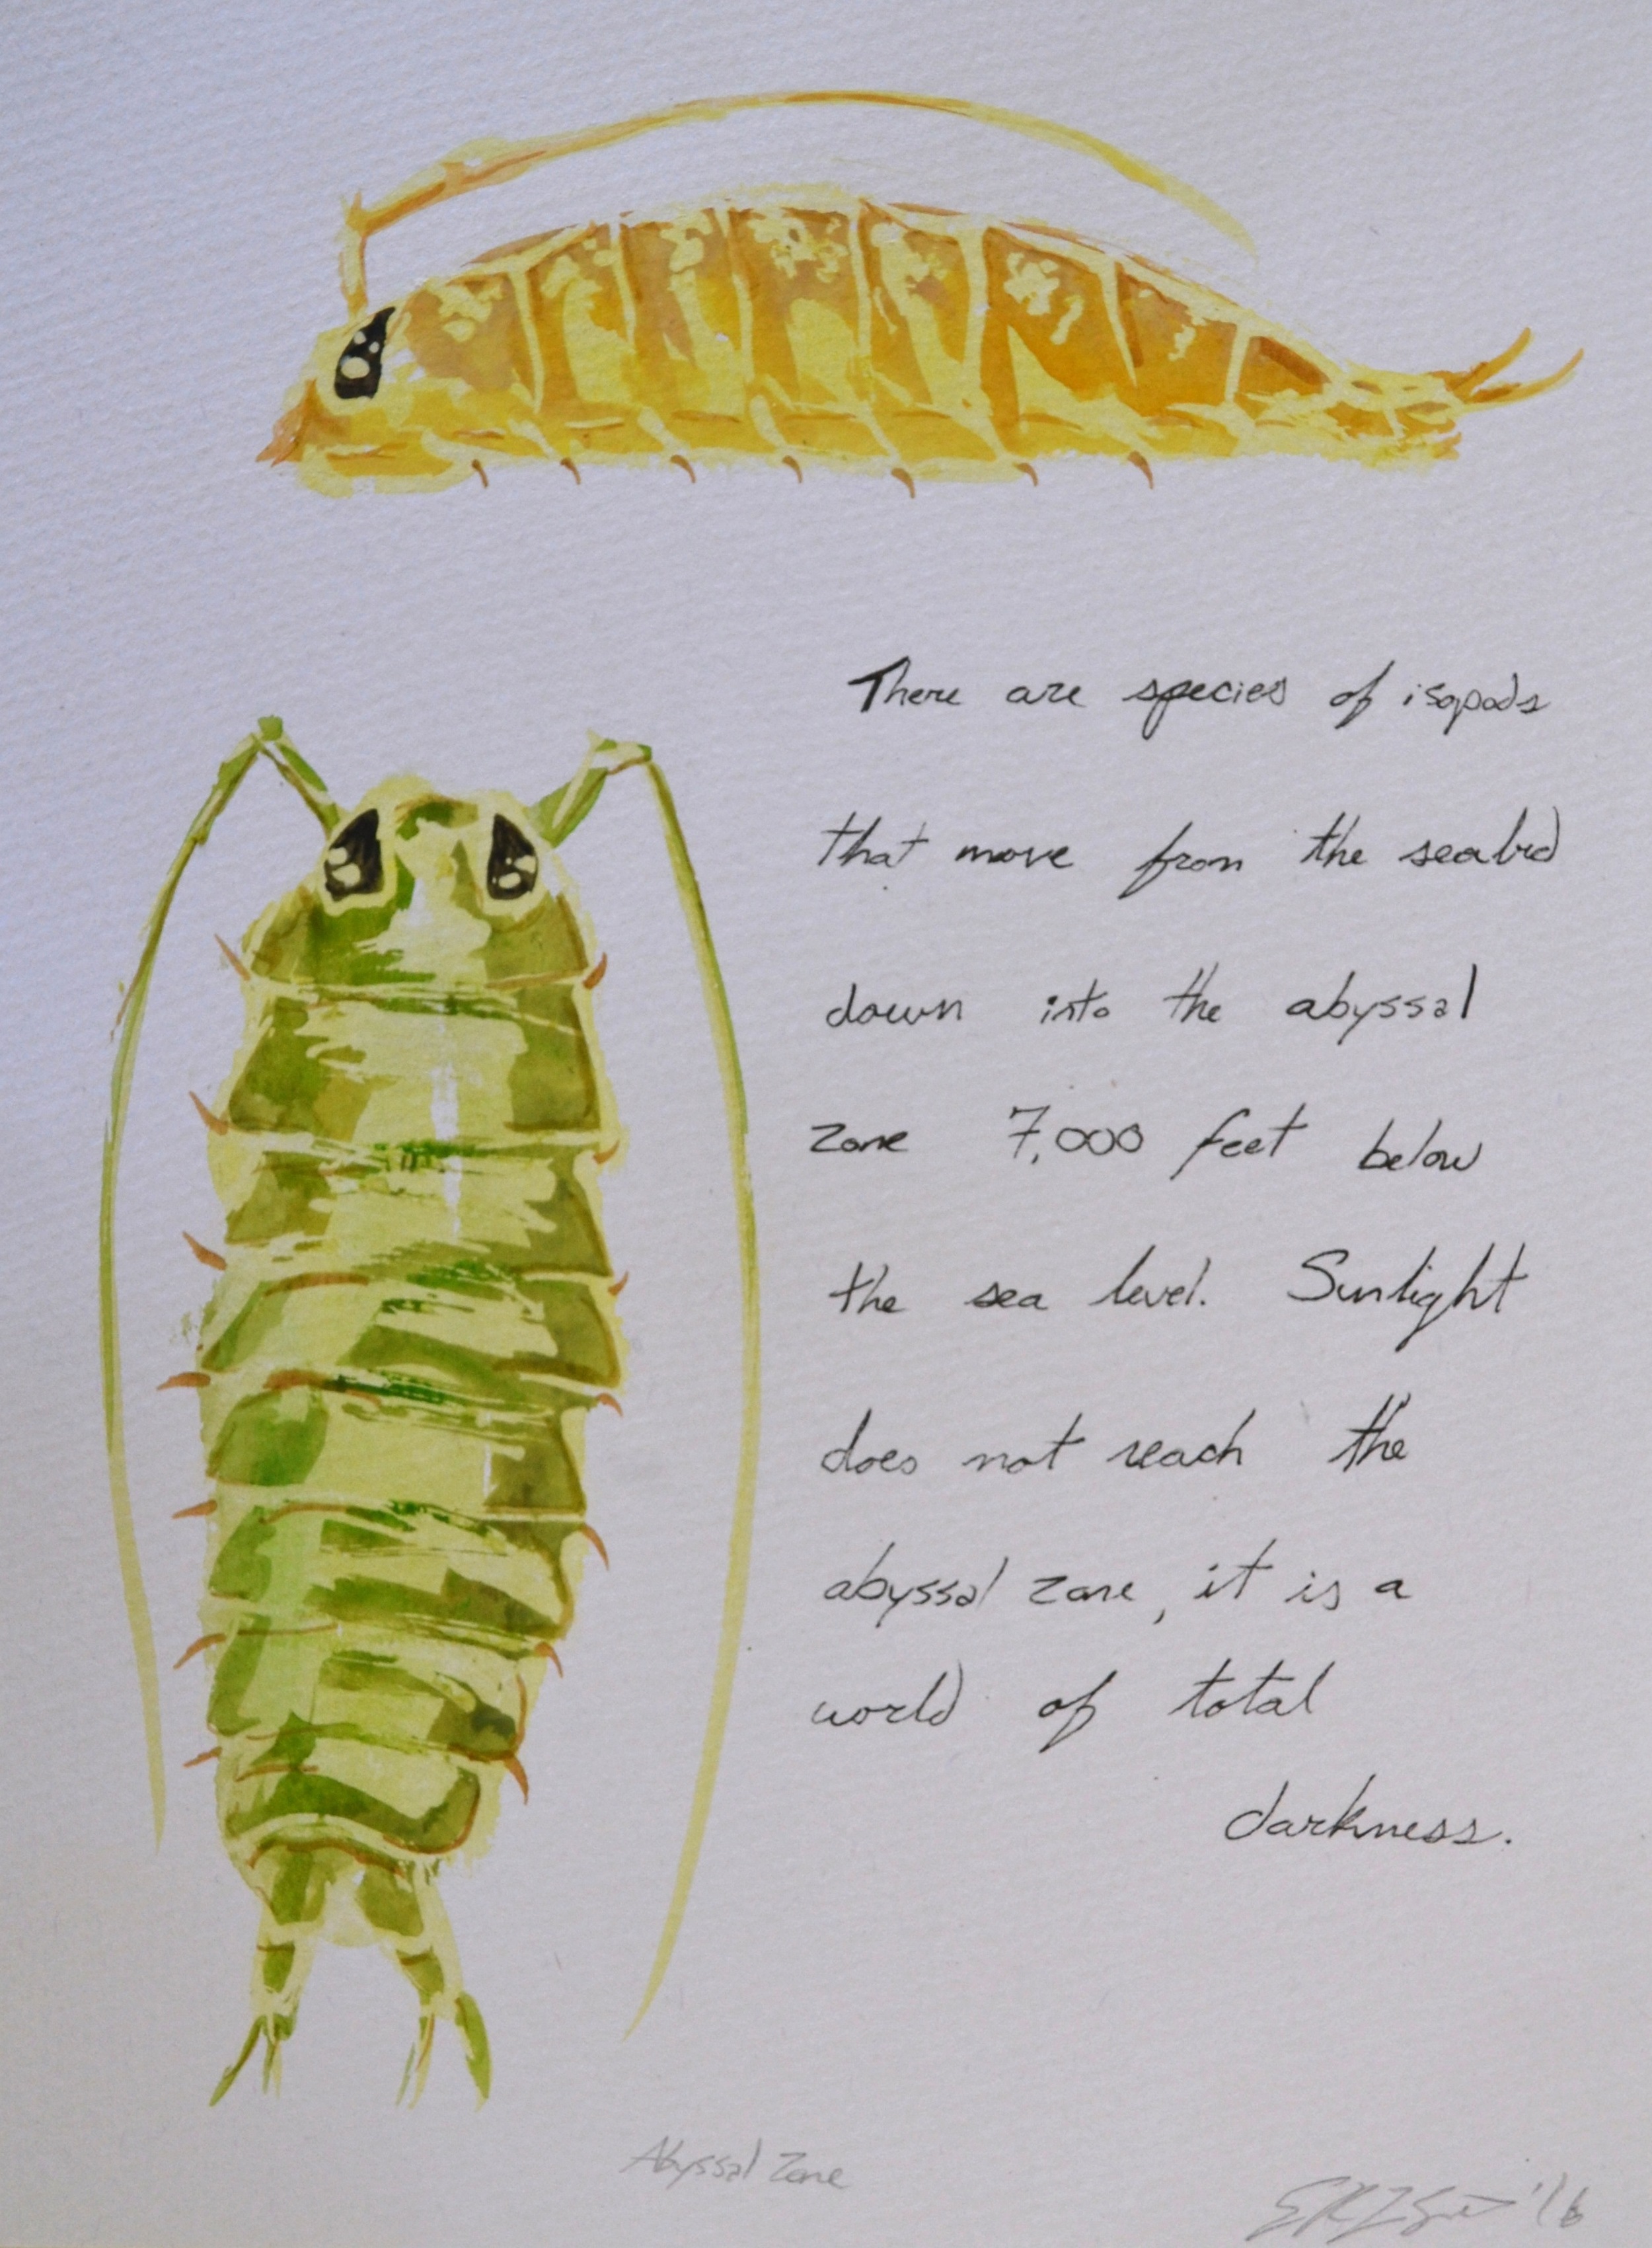 There are species of isopods
that move from the seabed
down into the abyssal
zone 7,000 feet below
the sea level. Sunlight
does not reach the
abyssal zone, it is a
world of total
darkness.
Abyssal Zone
'16